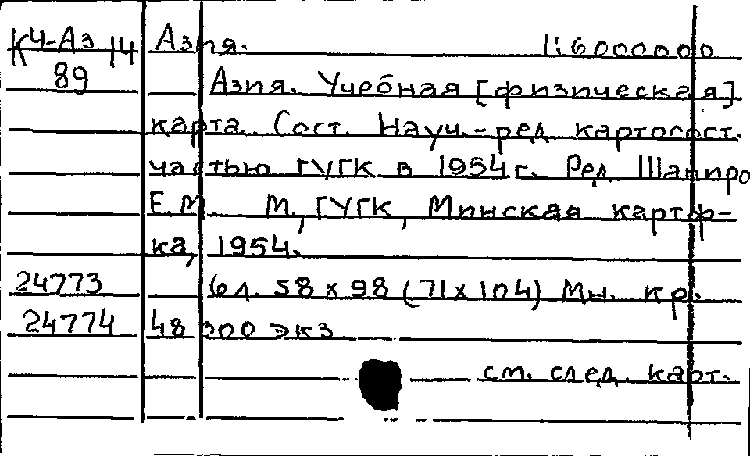 К4-Аз 14 Азия. 1:6000000
89 Азия. Учебная [физическая]
карта. Сост. Науч.-ред. картосост.
частью ГУГК в 1954 г. Ред. Шапиро
Е.М. М., ГУГК, Минская картф-
ка, 1954.
24773 6л. 58 x 98 (71 x 104) Мн. кр.
24774 48 300 экз
см. след. карт.